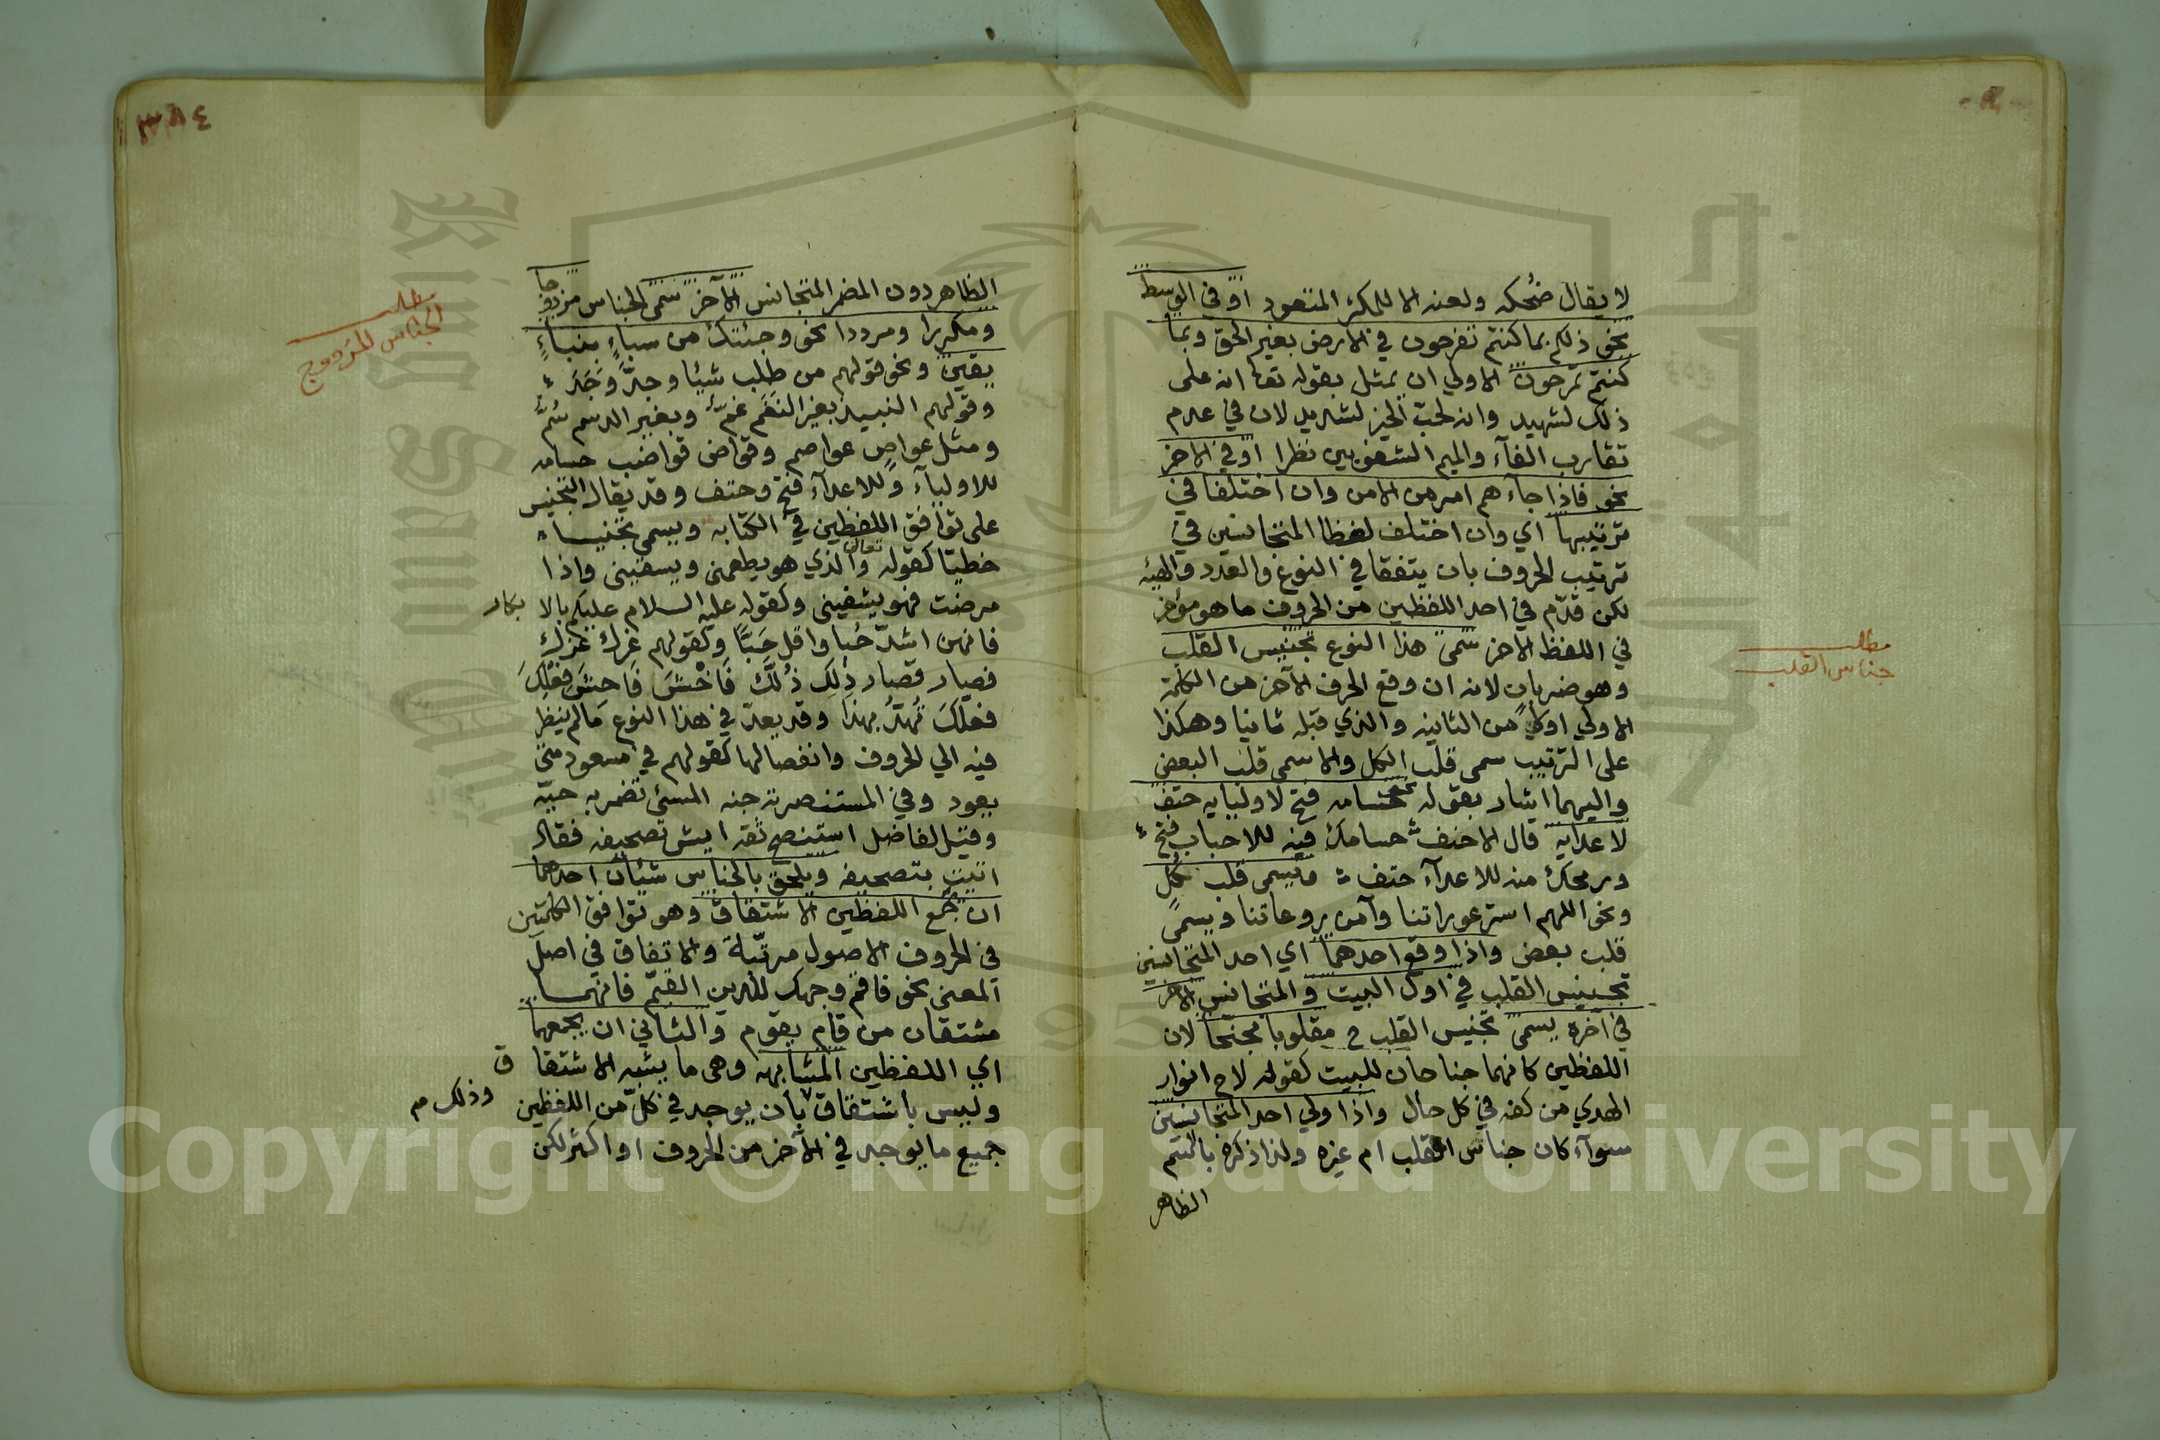 لا يقال ضحكه ولعنه الا للمكثر المتعود او في الوسط
نحو ذلكم بما كنتم تفرحون في الارض بغير الحق وبما
كنتم تمرحون الاولي ان يمثل بقوله تعا انه على
ذلك لشهيد وانه لحب الخير لشديد لان في عدم
تقارب الفآء والميم الشفويين نظرا او في الاخر
نحو فاذا جآءهم امر من الامن وان اختلفا في
ترتيبها اي وان اختلف لفظا المتجانسين في
ترتيب الحروف بان يتفقا في النوع والعدد والهيئه
لكن قدّم في احد اللفظين من الحروف ما هو مؤخر
في اللفظ الاخر سمى هذا النوع تجنيس القلب
مطلب
جناس القلب
وهو ضربان لانه ان وقع الحرف الآخر من الكلمة
الاولي اولاً من الثانيه والذي قبله ثانيا وهكذا
على الترتيب سمى قلب الكل والا سمى قلب البعض
واليهما اشار بقوله نحو حسامه فتح لاوليايه حتف
لاعدايه قال الاحنف حسامك فيه للاحباب فتح
ورمحك منه للاعدآء حتف ويسمى قلب كل
ونحو اللهم استر عوراتنا وآمن روعاتنا ويسمى
قلب بعض واذا وقع احدهما اي احد المتجانسين
تجنيس القلب في اول البيت والمتجانس الاخر
في آخره يسمى تجنيس القلب ح مقلوبا مجنحا لان
اللفظين كانهما جناحان للبيت كقوله لاح انوار
الهدي من كفه في كل حال واذا ولي احد المتجانسين
سوآء كان جناس القلب ام غيره ولذا ذكره بالاسم
الظاهر
٣٨٤
الظاهر دون المضمر المتجانس الآخر سمى الجناس مزدوجا
مطلب
الجناس المزدوج
ومكررا ومرددا نحو وجئتك من سباءٍ بنباءٍ
يقين ونحو قولهم من طلب شيئا وجدّ وَجَدَ
وقولهم النبيذ بغير النغم غمّ وبغير الدسم سُمّ
ومثل عواصٍ عواصم وقواض قواضب حسامه
للاوليآء وللاعدآء فتح وحتف وقد يقال التجنيس
على توافق اللفظين في الكتابه ويسمى تجنيسا
خطيّا كقوله تعالى والذي هو يطعمني ويسقيني واذا
مرضت فهو يشفيني وكقوله عليه السلام عليكم بالابكار
فانهن اشدّ حُبا واقل خَبًّا وكقولهم غرك عزك
فصار قصار ذلك ذُلّك فَاخْشَ فَاحِشَ فعلك
فعلّك تُهْدَ بهذا وقد يعدّ في هذا النوع ما لم ينظر
فيه الي الحروف وانفصالها كقولهم في مسعود متى
يعود وفي المستنصرية جنه المسئ تضر به حيّه
وقيل لفاضل استنصح ثقه ايش تصحيفه فقال
اتيت بتصحيفه ويلحق بالجناس شيئان احدهما
ان يجمع اللفظين الاشتقاق وهو توافق الكلمتين
في الحروف الاصول مرتبة والاتفاق في اصل
المعنى نحو فاقم وجهك للدين القيّم فانهما
مشتقان من قام يقوم والثاني ان يجمعهما
اي اللفظين المشابهه وهي ما يشبه الاشتقاق
وليس باشتقاق وذلك بان يوجد في كلّ من اللفظين
جميع ما يوجد في الآخر من الحروف او اكثر لكن
Copyright © King Saud University